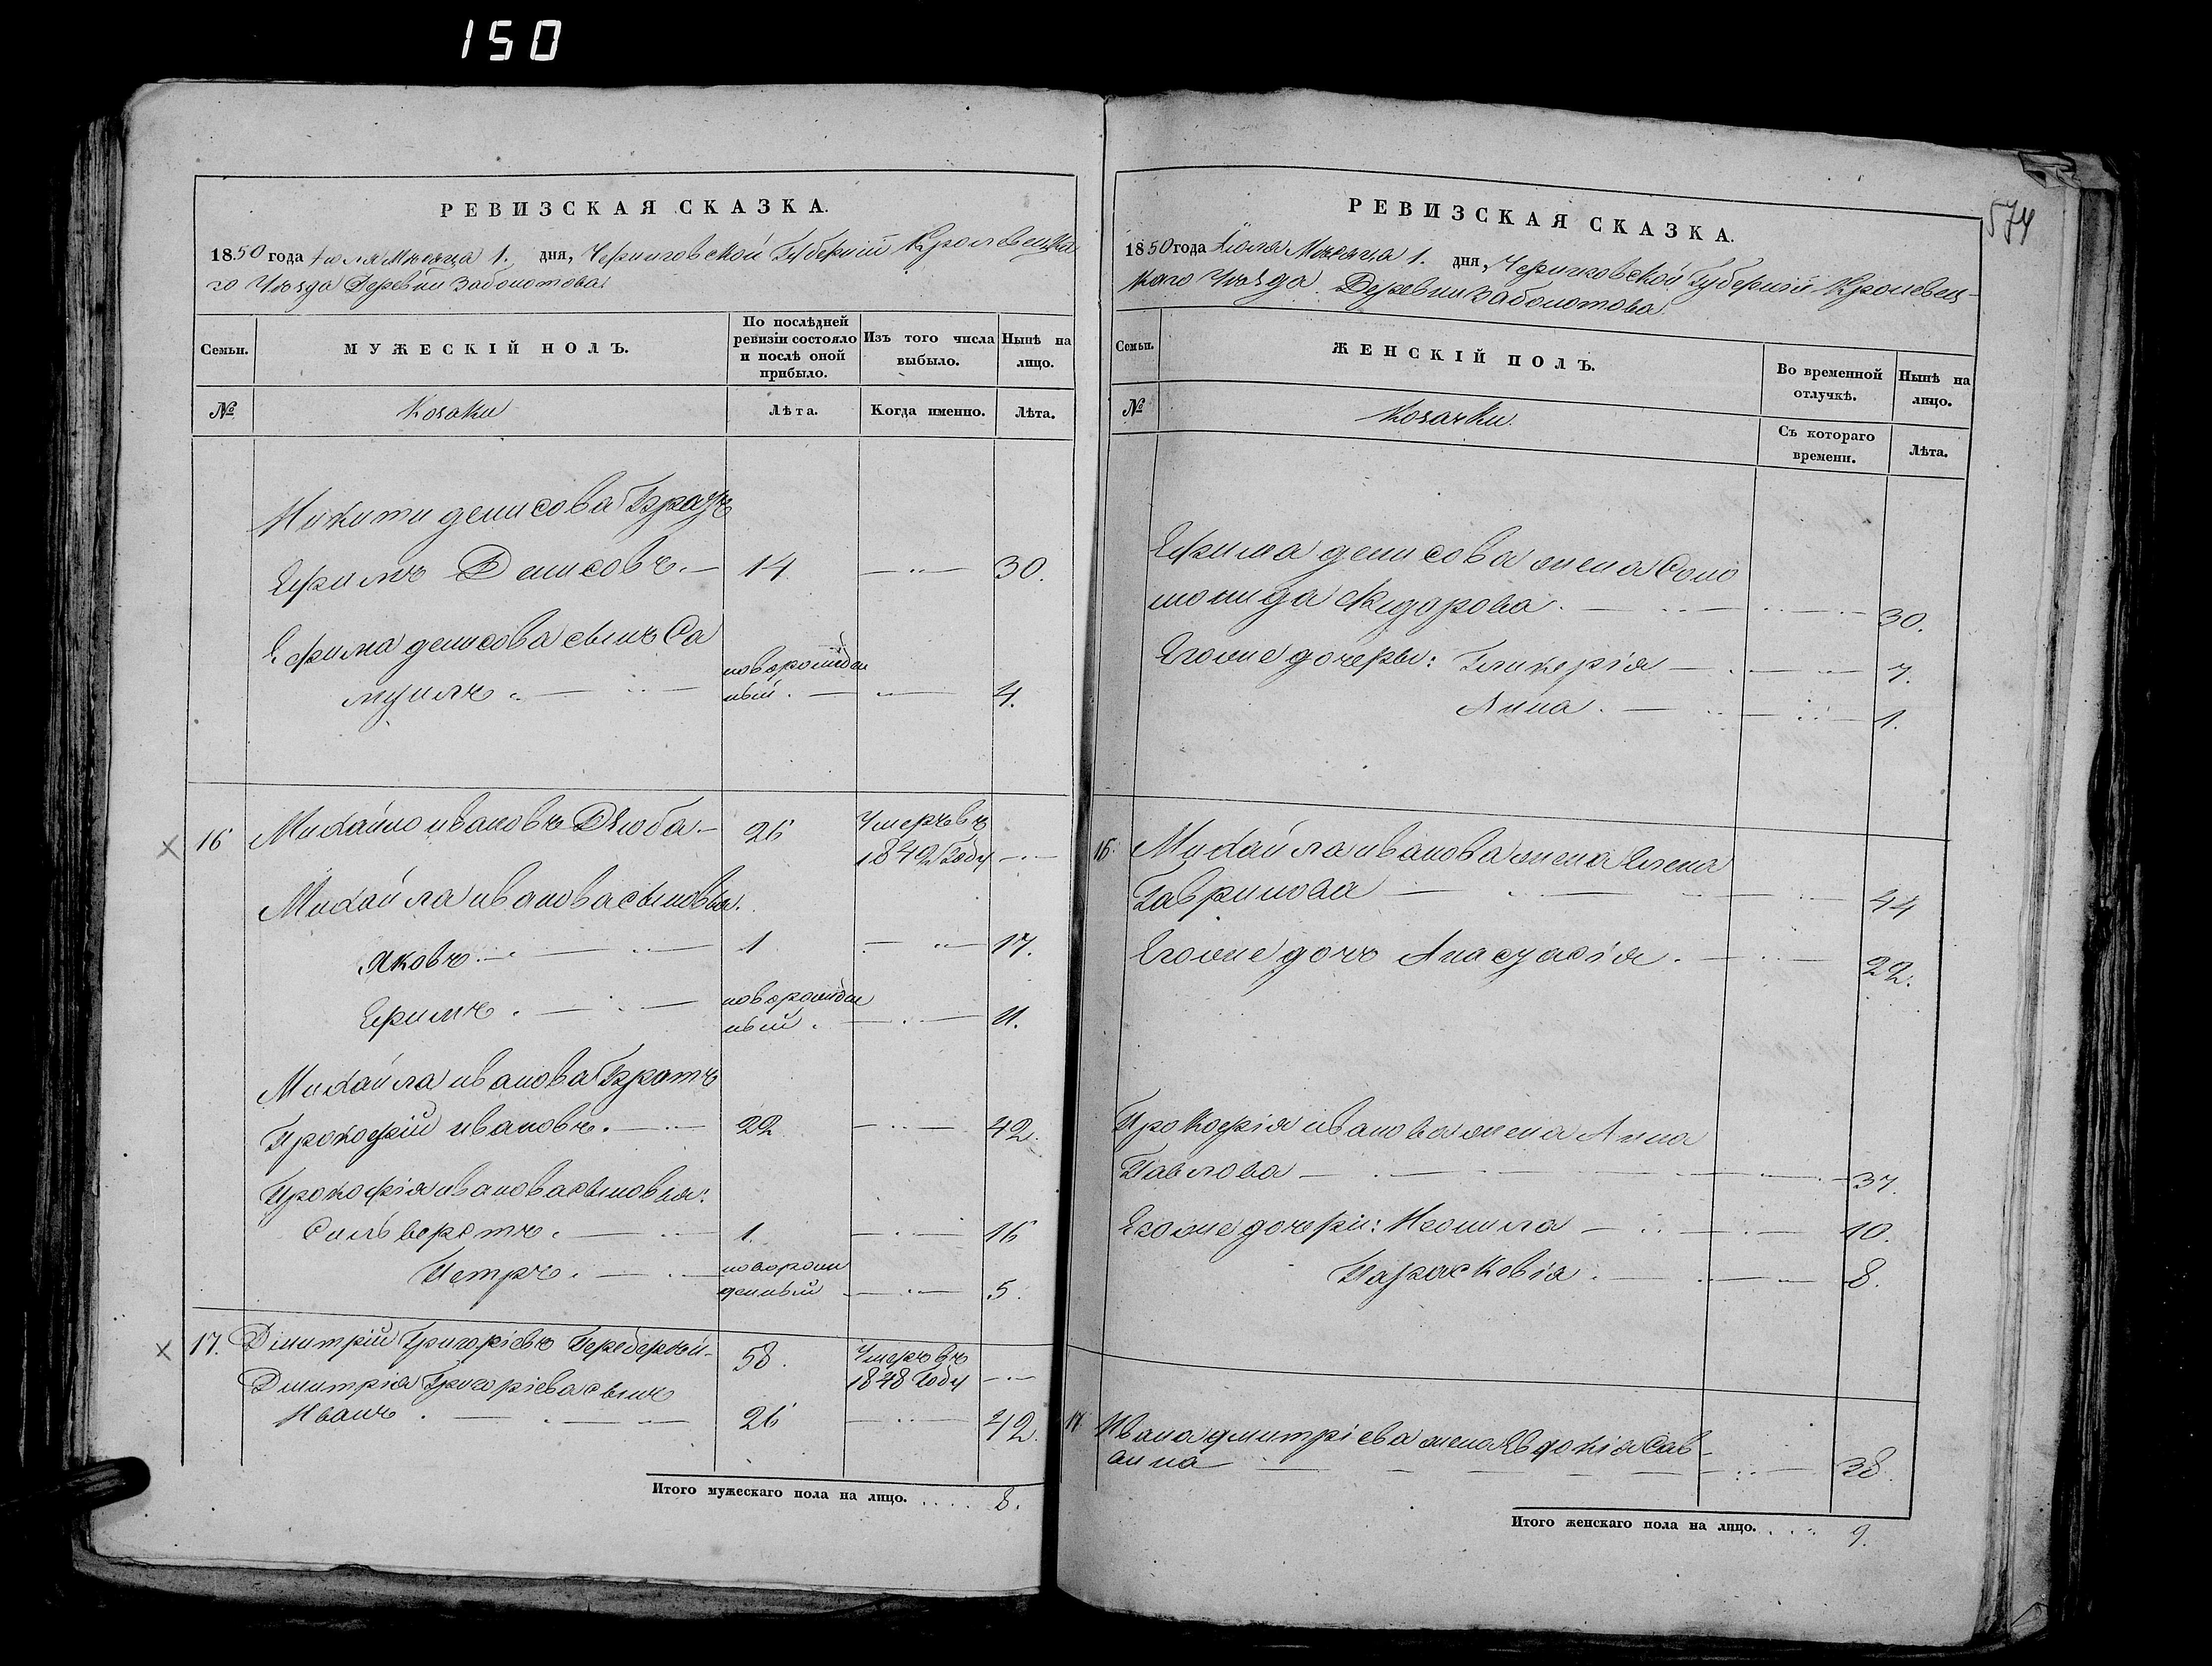 150
РЕВИЗСКАЯ СКАЗКА.
1850 года Іюля Мѣсяца 1. дня, Черниговской Губерніи Кролевецка
го Уѣзда Деревни Заболотова
Семьи.
МУЖЕСКІЙ ПОЛЪ.
По послѣдней ревизіи состояло и послѣ оной прибыло.
Изъ того числа выбыло.
Нынѣ на лицо.
№
Козаки
Лѣта.
Когда именно.
Лѣта.
Никити денисова Братъ
Ефимъ Денисовъ. 14 30.
Ефима денисова сынъ Са
муилъ новорожден ный 4.
16 Михайло ивановъ Дзюба 26 Умеръ въ
1842 Году
Михайла иванова сыновья.
Яковъ 1 17.
Ефимъ новорожден ный 11.
Михайла иванова Братъ
Прокофій ивановъ. 22 42.
Прокофія иванова сыновья:
Сильверстъ 1. 16
Петръ новорож денный 5.
17. Дмитрій Григоріевъ 58. Умеръ въ
1848 Году
Дмитрія Григоріева сынъ
Иванъ 26 42.
Итого мужескаго пола на лицо. 8.
574
РЕВИЗСКАЯ СКАЗКА.
1850 года Іюля Мѣсяца 1. дня, Черниговской Губерніи Кролевец
каго Уѣзда Деревни Заболотова.
Семьи.
ЖЕНСКІЙ ПОЛЪ.
Во временной отлучкѣ.
Нынѣ на лицо.
№
Козачки.
Съ котораго времени.
Лѣта.
Ефима денисова жена Соло
монида Федорова. 30.
Егоже дочери: Гликерія 7.
Анна. 1.
16. Михайла иванова жена Елена
Гаврилова 44
Егоже дочь Анастасія. 22.
Прокофія иванова жена Анна
Павлова 37.
Егоже дочери: Неонила 10.
Парасковія. 8.
17 Ивана дмитріева жена Евдокія Сав
ина 38.
Итого женскаго пола на лицо. 9.